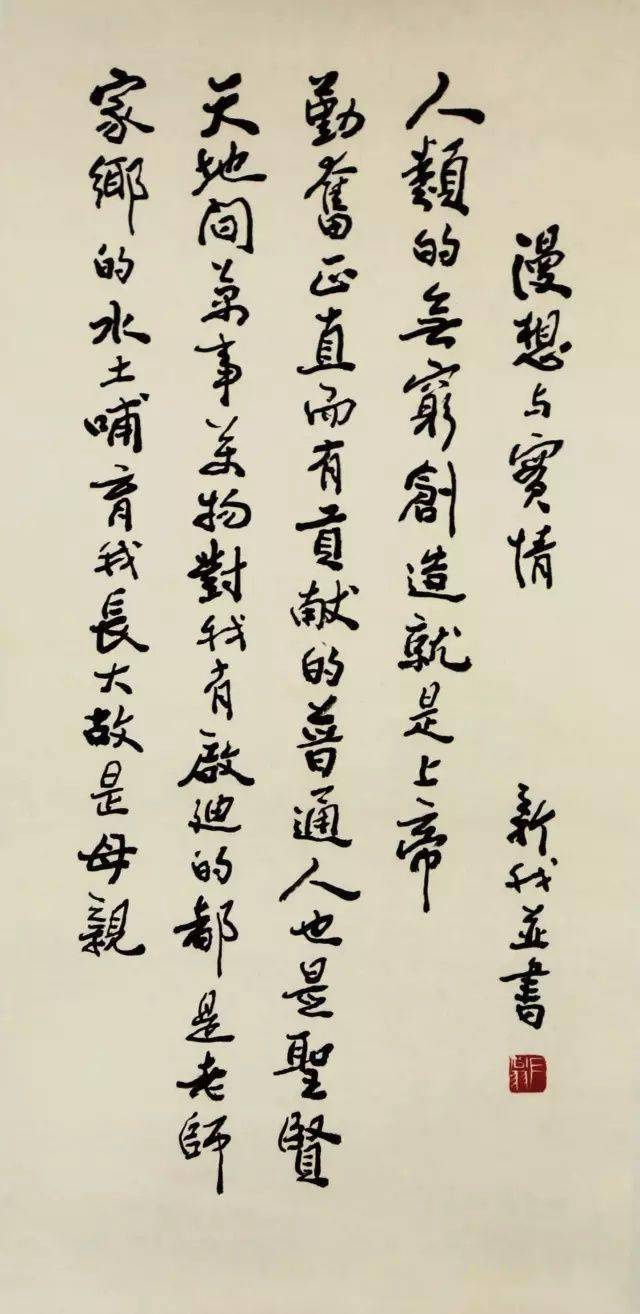 漫想与實情 新我並書
人類的無窮創造就是上帝
勤奮正直而有貢献的普通人也是聖賢
天地間萬事萬物對我有啟迪的都是老師
家鄉的水土哺育我長大故是母親